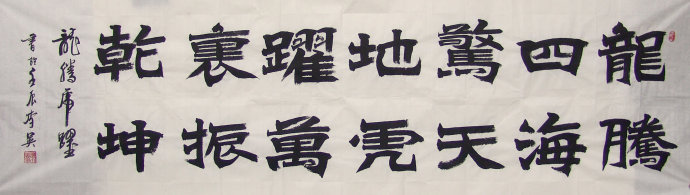 龍騰
四海
驚天
地虎
躍萬
裏振
乾坤
龍騰虎躍
書於壬辰